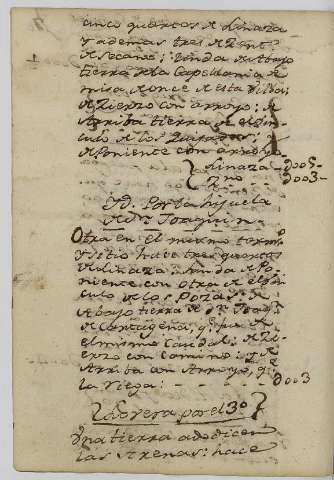 cinco quartos de Linaza
y ademas tres de
de secano: linda de Abajo
tierra de la Capellania de
misa de once de esta Villa:
de Zierzo con arroyo: de
Arriba tierra de el Vin-
culo de los Quixadas:
de Poniente con arroyo
Linaza - D005-
D003-
Yd. Por la hijuela
de Dn. Joaquin
Otra en el mismo termo.
y sitio hace tres quartos
de linaza: linda de Po-
niente con otra de el Vin-
culo de los Pozas: de
Abajo tierra de Dn. Joaqn.
de Cartagena, q. fue de
el mismo Caudal: de Zi-
erzo con Camino: y de
Arriba con Arroyo, q.
la riega: - - - - - D003
Lhovera por el 3o
Una tierra a do dicen
las Arenas: hace